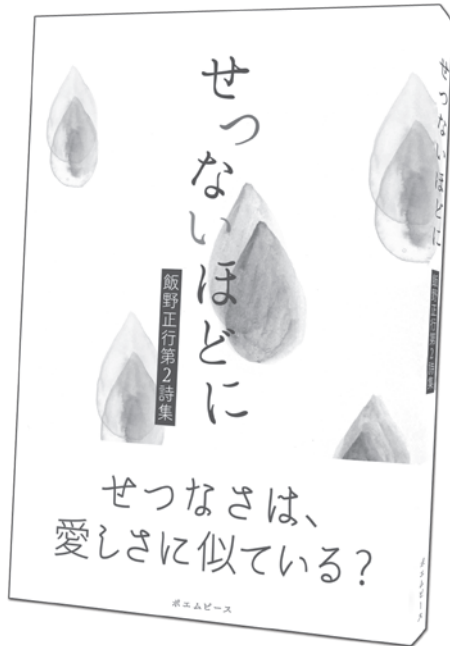 せつないほどに
飯野正行第2詩集
せつなさは、
愛しさに似ている？
ポエムピース
せつないほどに
飯野正行第2詩集
ポエムピース